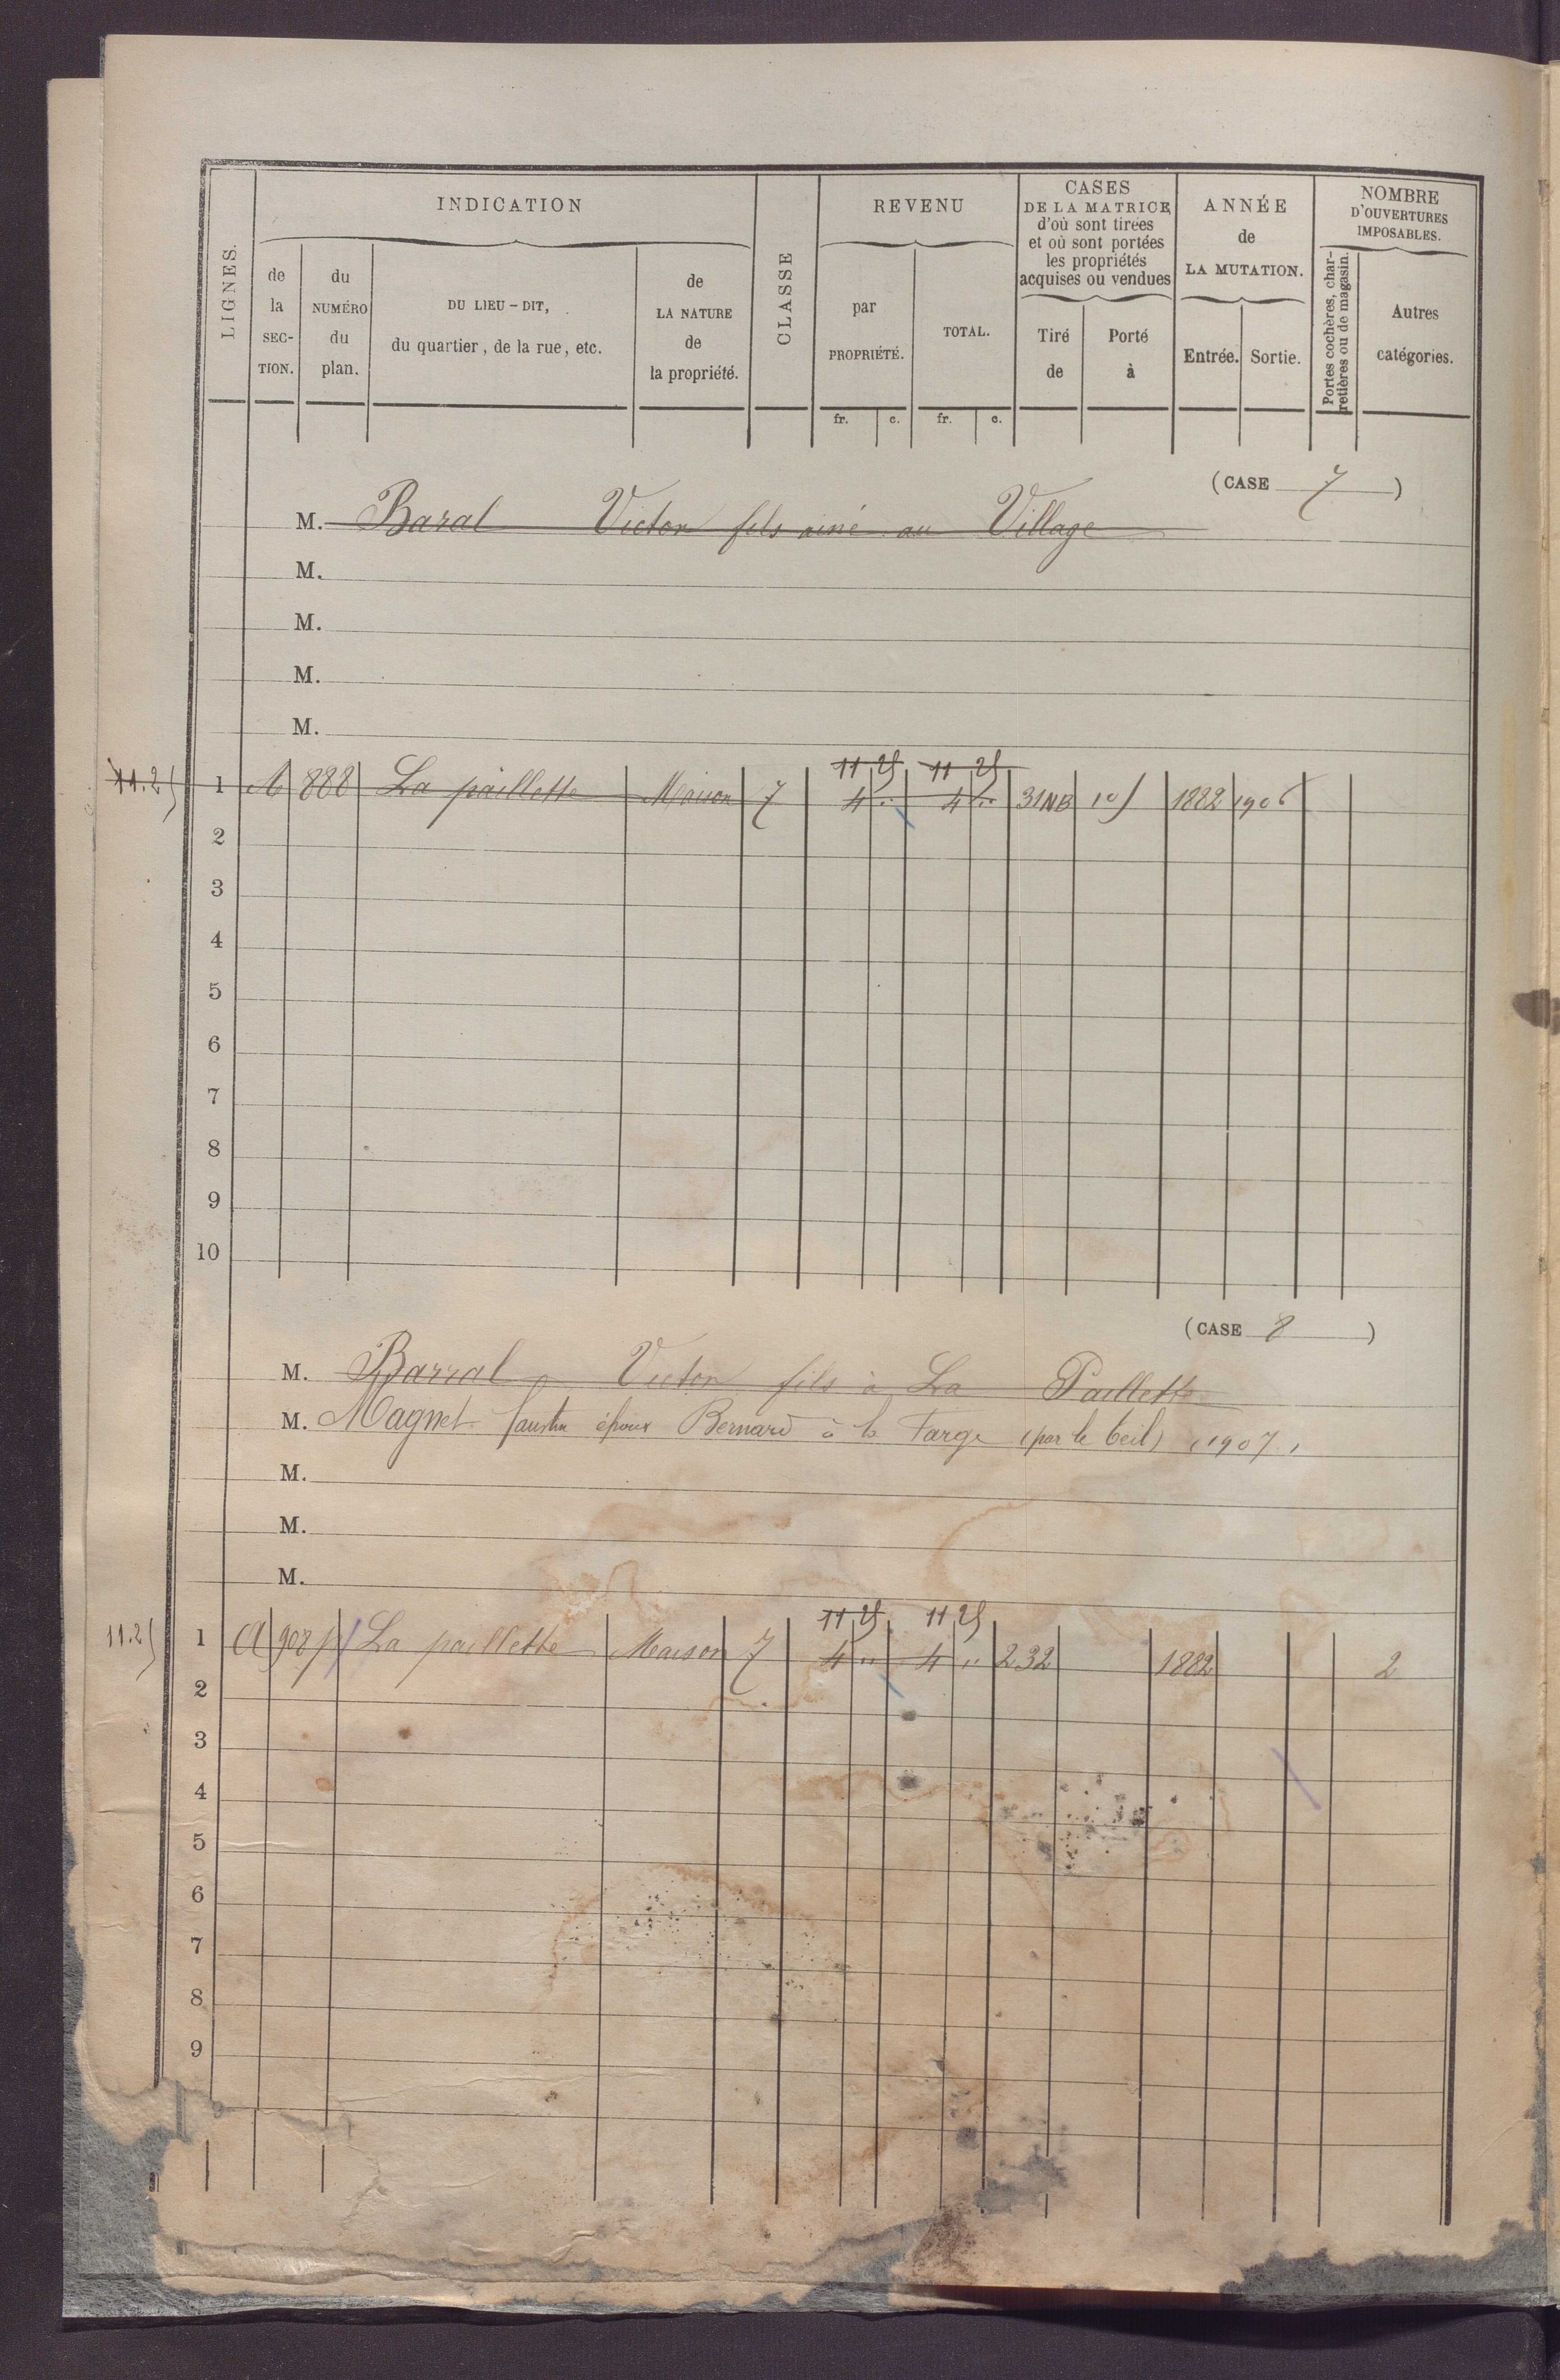 LIGNES. INDICATION CLASSE REVENU CASES DE LA MATRICE d'où sont tirées et où sont portées les propriétés acquises ou vendues ANNÉE de LA MUTATION. NOMBRE D'OUVERTURES IMPOSABLES.
de la SEC-TION. du NUMÉRO du plan. DU LIEU-DIT, du quartier, de la rue, etc. de LA NATURE de la propriété. par PROPRIÉTÉ. TOTAL. Tiré de Porté à Entrée. Sortie. Portes cochères, char-retières ou de magasin. Autres catégories.
fr. c. fr. c.
(CASE 7)
M. Baral Victor fils ainé au Village
M.
M.
M.
M.
11 25 11 25
11.25 1 888 La paillette Maison 7 4 " 4 " 31NB 105 1882 1906
2
3
4
5
6
7
8
9
10
(CASE 8)
M. Barral Victor fils à La Paillette
M. Magnet faustin époux Bernard à la Farge (par le teil) (1907)
M.
M.
M.
11 25 11 25
11.25 1 A 908 p La paillette Maison 7 4 " 4 " 232 1882 2
2
3
4
5
6
7
8
9